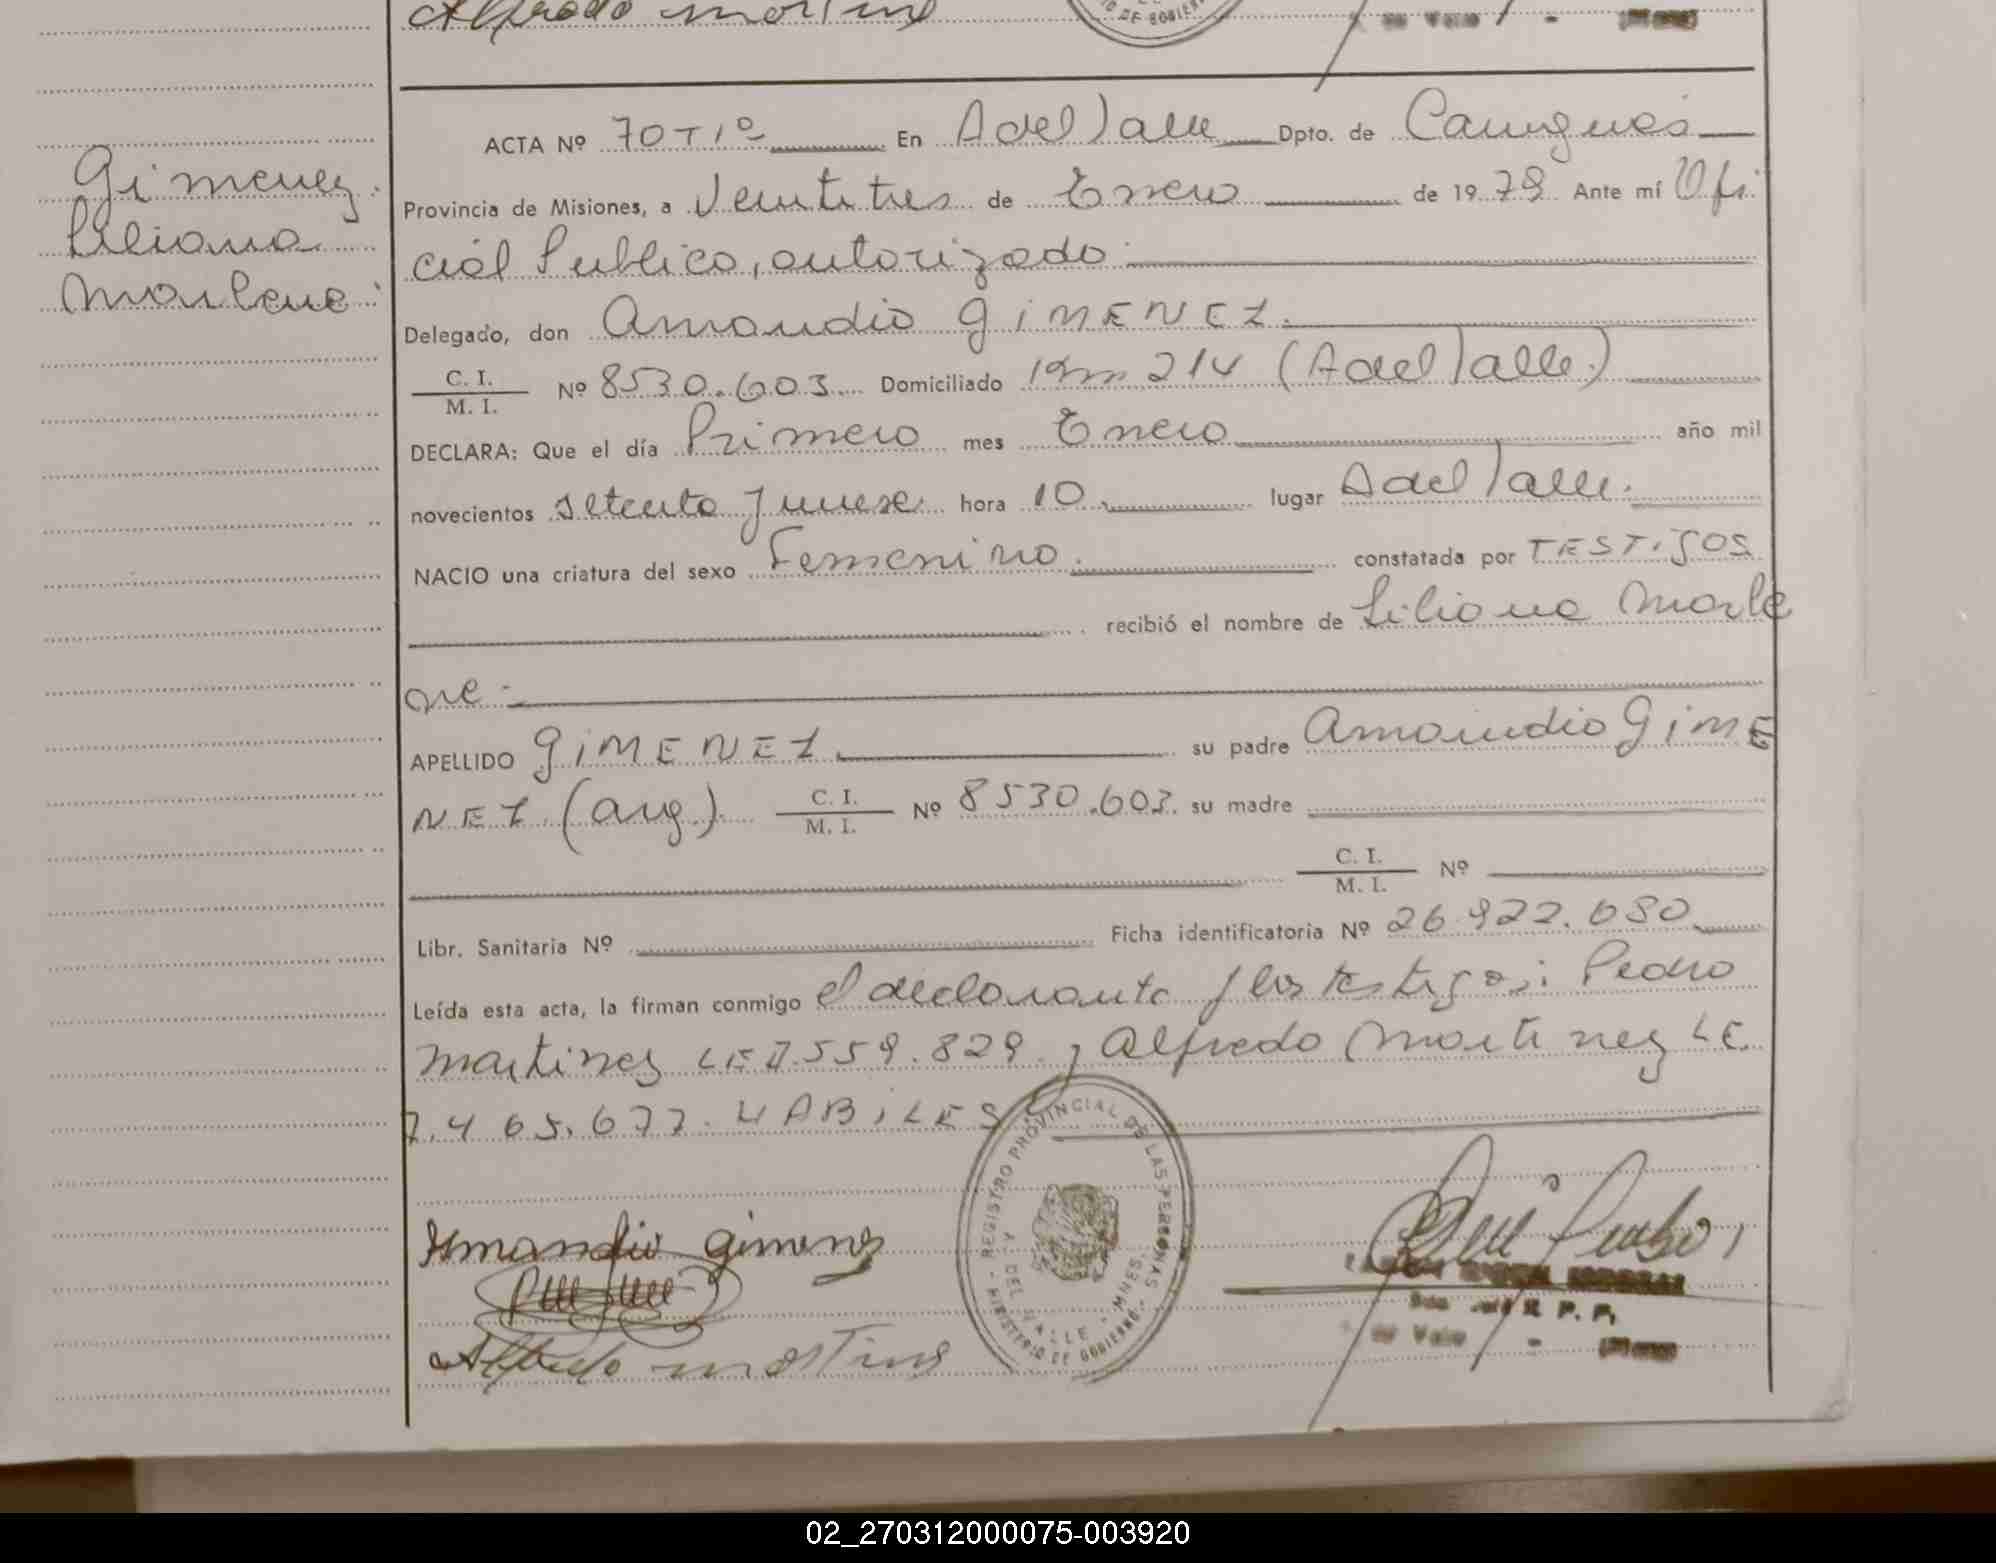 Alfredo
DE GOBIERN
ACTA Nº 70 T 1º En A del Valle Dpto. de Cainguas
Gimenez
Liliana
Marlene
Provincia de Misiones, a Veintitres de Enero de 1979 Ante mí Ofi
cial Publico, autorizado
Delegado, don Amandio GiMENEZ
C. I.
M. I. Nº 8530.603 Domiciliado Km 214 (A del Valle)
DECLARA: Que el día Primero mes Enero año mil
novecientos setenta y nueve hora 10 lugar A del Valle
NACIO una criatura del sexo Femenino constatada por TESTIGOS
recibió el nombre de Liliana Marle
ne
APELLIDO GiMENEZ su padre Amandio GiME
NEZ (arg) C. I.
M. I. Nº 8530.603 su madre
C. I.
M. I. Nº
Libr. Sanitaria Nº Ficha identificatoria Nº 26.922.680
Leída esta acta, la firman conmigo el declarante y los testigos: Pedro
Martinez LE 7.559.829 y Alfredo Martinez LE
7.465.677. HABiLES
REGISTRO PROVINCIAL DE LAS PERSONAS
MINISTERIO DE GOBIERNO
DEL VALLE - MNES.
Amandio Gimenez
Alfredo
R. P. P.